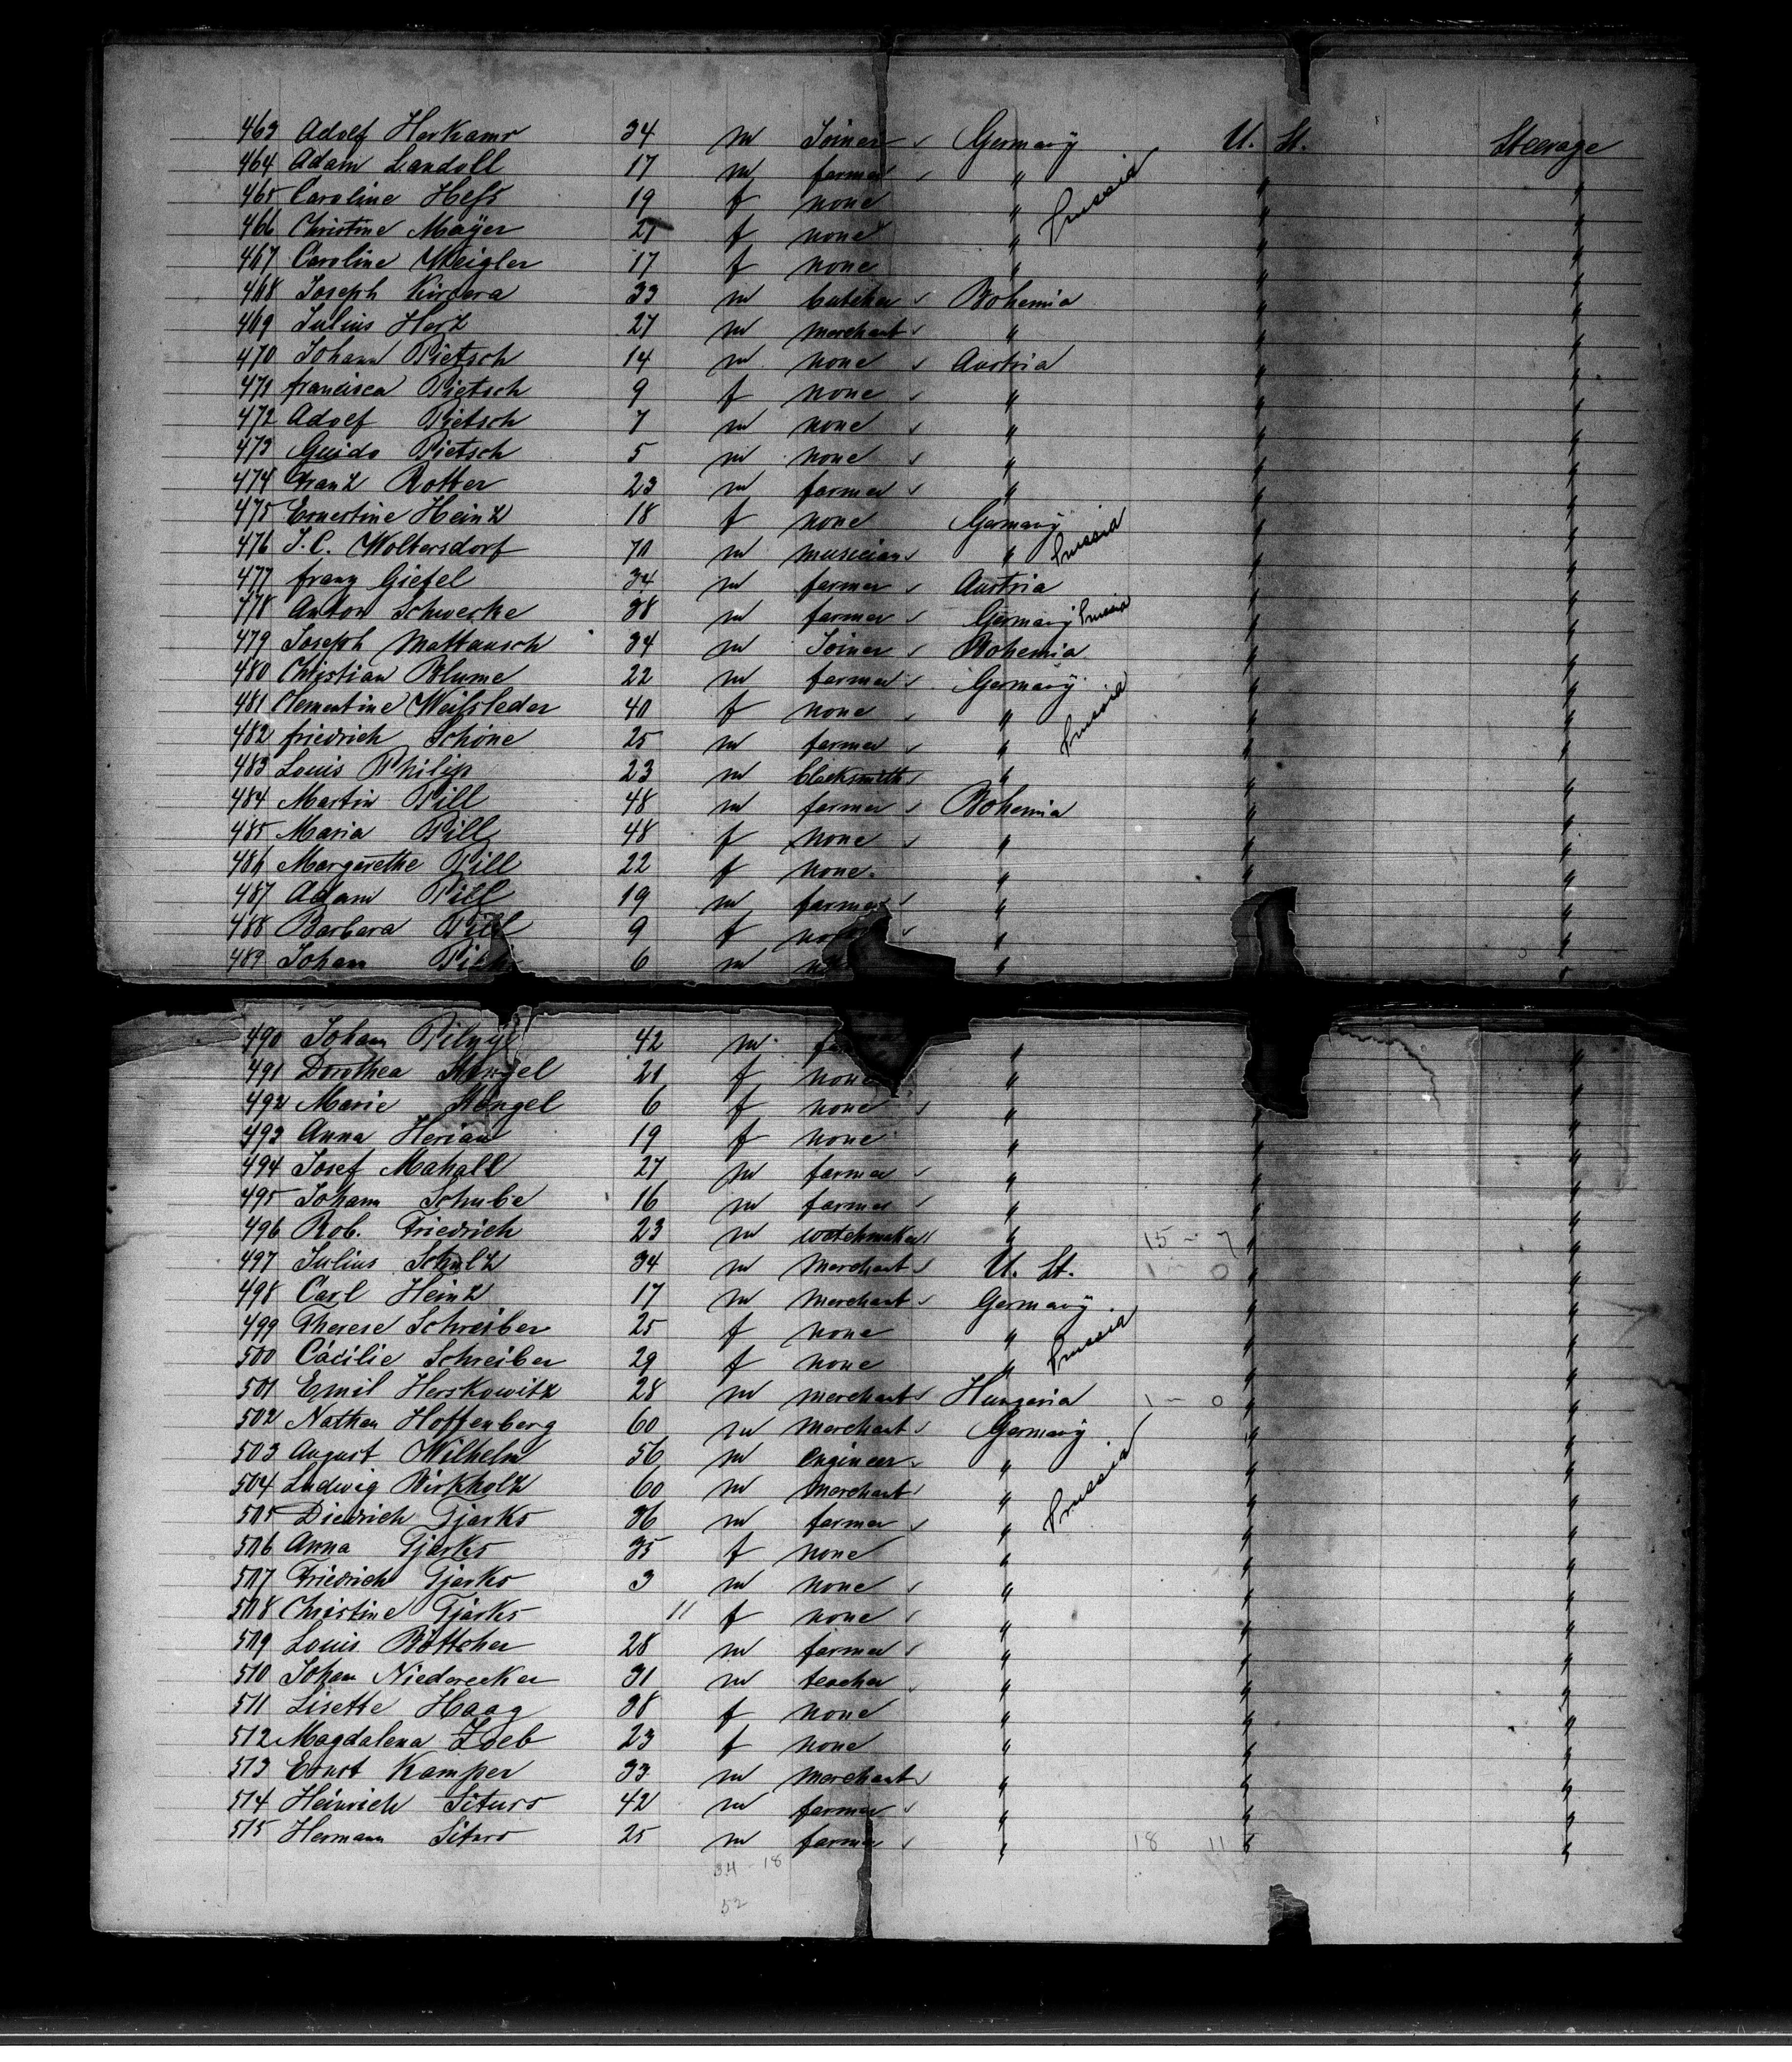 463 Adolf Herkamr 34 m Joiner ✓ Germany U. St. Steerage
464 Adam Landoll 17 m farmer ✓ " " "
465 Caroline Hess 19 f none " Prussia " "
466 Christine Mayer 21 f none " " "
467 Caroline Weigler 17 f none " " "
468 Joseph 33 m butcher ✓ Bohemia " "
469 Julius Herz 27 m merchant ✓ " " "
470 Johann Pietsch 14 m none ✓ Austria " "
471 francisca Pietsch 9 f none ✓ " " "
472 Adolf Pietsch 7 m none ✓ " " "
473 Guido Pietsch 5 m none ✓ " " "
474 Franz Rotter 23 m farmer ✓ " " "
475 Ernestine Heinz 18 f none Germany " "
476 J. C. Woltersdorf 70 m musician ✓ " Prussia " "
477 franz Giefel 34 m farmer ✓ Austria " "
478 Anton Schwerke 38 m farmer ✓ Germany Prussia " "
479 Joseph Mattausch 34 m Joiner ✓ Bohemia " "
480 Christian Blume 22 m farmer ✓ Germany " "
481 Clementine Weissleder 40 f none ✓ " Prussia " "
482 friedrich Schöne 25 m farmer ✓ " " "
483 Louis Philip 23 m blacksmith ✓ " " "
484 Martin Pill 48 m farmer ✓ Bohemia " "
485 Maria Pill 48 f none ✓ " " "
486 Margarethe Pill 22 f none " " "
487 Adam Pill 19 m farmer ✓ " " "
488 Barbara Pill 9 f none ✓ " "
489 Johann 6 m " "
490 Johann 42 m " "
491 Dorothea Stengel 21 f none " "
492 Marie Stengel 6 f none ✓ " " "
493 Anna Herian 19 f none " " "
494 Josef Mahall 27 m farmer ✓ " " "
495 Johann Schube 16 m farmer ✓ " " "
496 Rob. Friedrich 23 m watchmaker ✓ " 15 - 7 " "
497 Julius Schulz 34 m Merchant ✓ U. St. 1 - 0 " "
498 Carl Heinz 17 m Merchant ✓ Germany " "
499 Therese Schreiber 25 f none " Prussia " "
500 Cäcilie Schreiber 29 f none " " "
501 Emil Herskowitz 28 m merchant ✓ Hungaria 1 - 0 " "
502 Nathan Hoffenberg 60 m Merchant ✓ Germany " "
503 August Wilhelm 56 m engineer ✓ " " "
504 Ludwig Birkholz 60 m Merchant ✓ " Prussia " "
505 Diedrich Tjarks 36 m farmer ✓ " " "
506 Anna Tjarks 35 f none " " "
507 Friedrich Tjarks 3 m none ✓ " " "
508 Christine Tjarks 11 f none ✓ " " "
509 Louis Böttcher 28 m farmer ✓ " " "
510 Johan Niederecker 31 m teacher ✓ " " "
511 Lisette Haag 38 f none " " "
512 Magdalena Zoeb 23 f none " " "
513 Ernst Kamper 33 m Merchant ✓ " " "
514 Heinrich Siturs 42 m farmer ✓ " " "
515 Hermann Siturs 25 m farmer ✓ " 18 11 " "
34 - 18
52